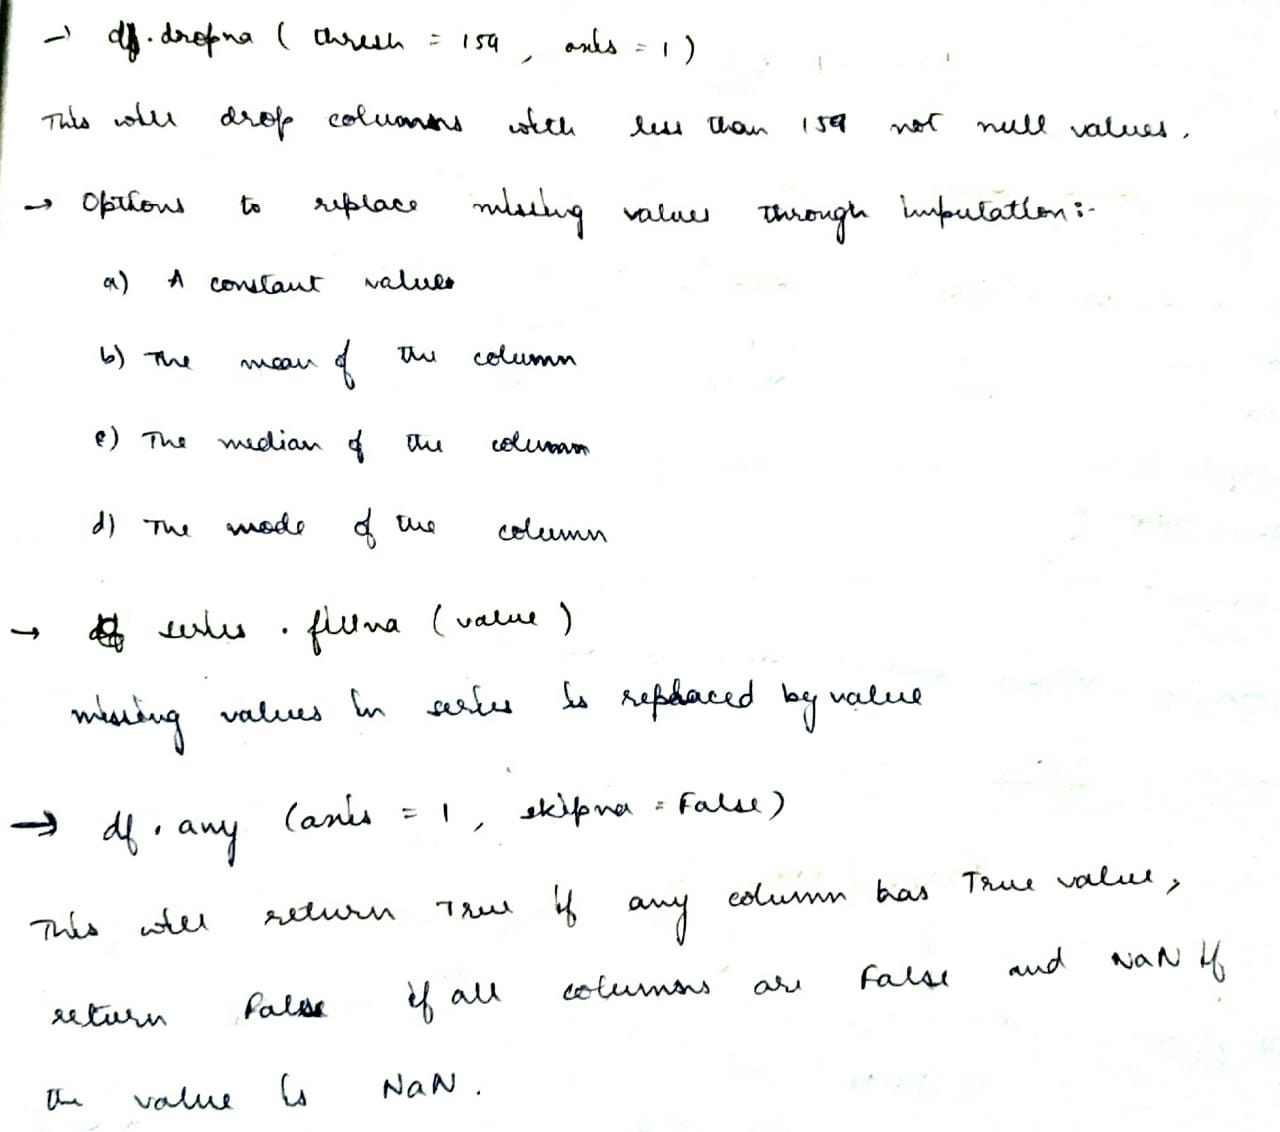 → df.dropna ( thresh = 159 , axis = 1 )
This will drop columns with less than 159 not null values.
→ Options to replace missing values through imputation:-
a) A constant values
b) The mean of the column
c) The median of the column
d) The mode of the column
→ series . fillna ( value )
missing values in series is replaced by value
→ df . any ( axis = 1 , skipna = False )
This will return True if any column has True value,
return False if all columns are False and NaN if
the value is NaN .